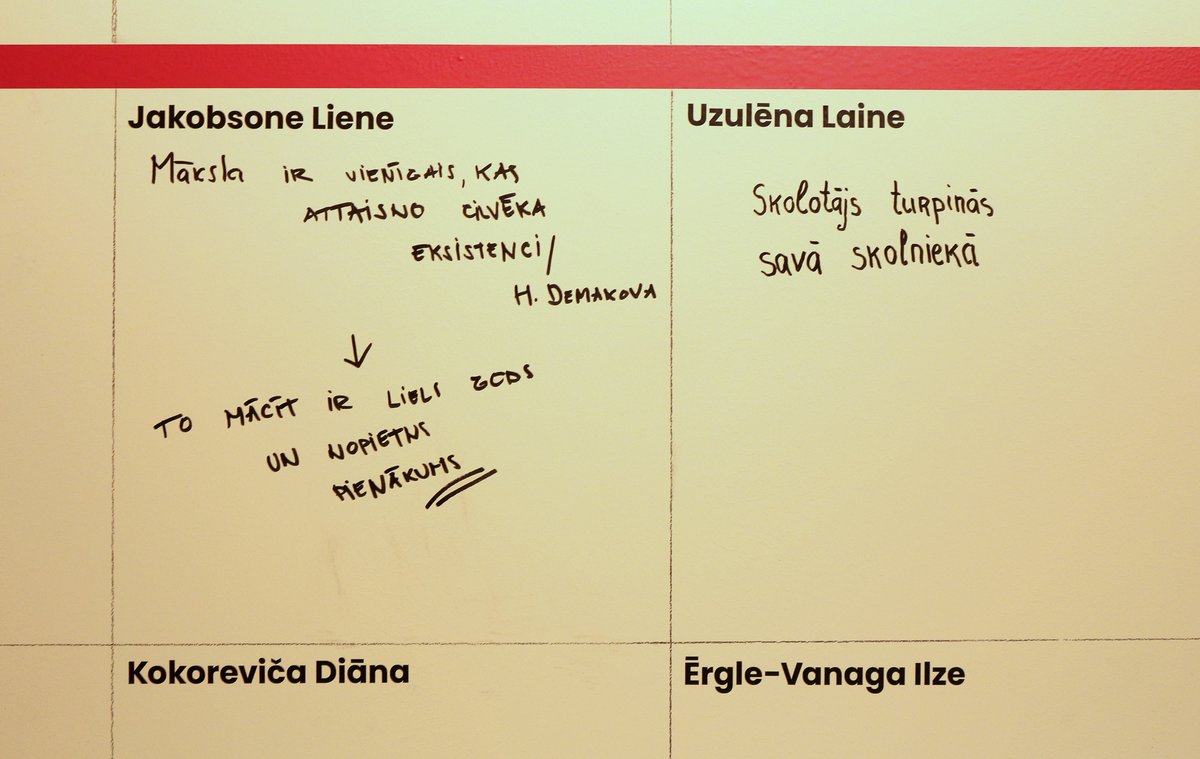 Jakobsone Liene
Māksla ir vienīgais, kas
attaisno cilvēka
eksistenci/
H. Demakova
↓
To mācīt ir liels gods
un nopietns
pienākums
Uzulēna Laine
Skolotājs turpinās
savā skolniekā
Kokoreviča Diāna
Ērgle-Vanaga Ilze